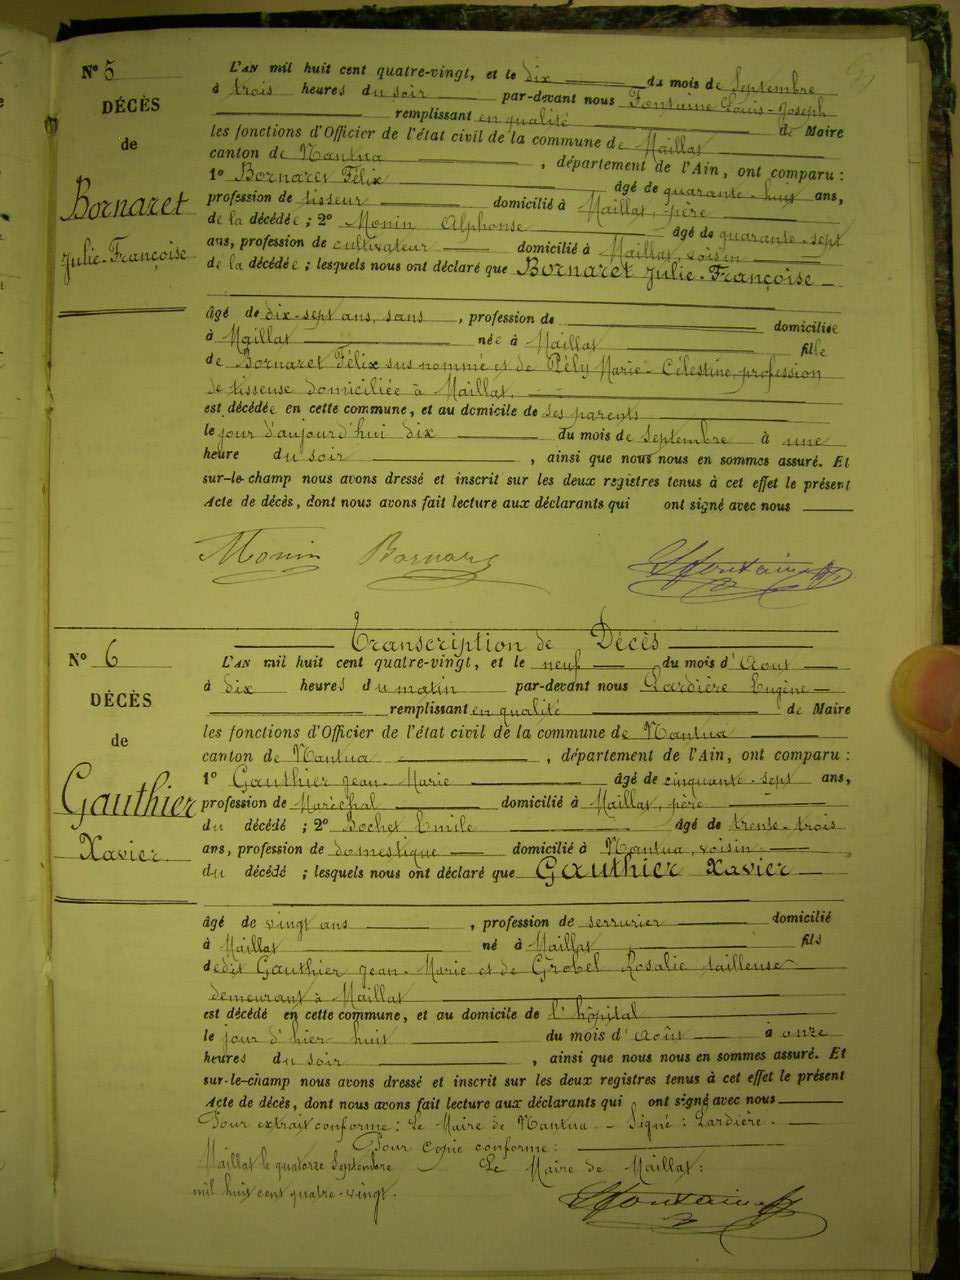 N° 5
DÉCÈS
de
Bornaret
Julie-Françoise
L'AN mil huit cent quatre-vingt, et le dix du mois de Septembre
à trois heures du soir par-devant nous Fontaine Louis-Joseph
remplissant en qualité de Maire
les fonctions d'Officier de l'état civil de la commune de Maillat
canton de Nantua, département de l'Ain, ont comparu :
1° Bornaret Félix âgé de quarante-huit ans,
profession de tisseur domicilié à Maillat, père
de la décédée ; 2° Monin Alphonse âgé de quarante-sept
ans, profession de cultivateur domicilié à Maillat, voisin
de la décédée ; lesquels nous ont déclaré que Bornaret Julie-Françoise
âgé de dix-sept ans, sans, profession de domiciliée
à Maillat née à Maillat fille
de Bornaret Félix susnommé et de Pély Marie-Célestine, profession
de tisseuse domiciliée à Maillat.
est décédée en cette commune, et au domicile de ses parents
le jour d'aujourd'hui dix du mois de Septembre à une
heure du soir, ainsi que nous nous en sommes assuré. Et
sur-le-champ nous avons dressé et inscrit sur les deux registres tenus à cet effet le présent
Acte de décès, dont nous avons fait lecture aux déclarants qui ont signé avec nous
Monin Bornaret Fontaine
Transcription de Décès
N° 6
DÉCÈS
de
Gauthier
Xavier.
L'AN mil huit cent quatre-vingt, et le neuf du mois d'Aout
à dix heures du matin par-devant nous Lardière Eugène
remplissant en qualité de Maire
les fonctions d'Officier de l'état civil de la commune de Nantua
canton de Nantua, département de l'Ain, ont comparu :
1° Gauthier Jean-Marie âgé de cinquante-sept ans,
profession de Maréchal domicilié à Maillat, père
du décédé ; 2° Bochet Emile âgé de trente-trois
ans, profession de domestique domicilié à Nantua, voisin
du décédé ; lesquels nous ont déclaré que Gauthier Xavier
âgé de vingt ans, profession de serrurier domicilié
à Maillat né à Maillat fils
dedit Gauthier Jean-Marie et de Grobel Rosalie tailleuse
demeurant à Maillat
est décédé en cette commune, et au domicile de l'hôpital
le jour d'hier huit du mois d'Août à onze
heures du soir, ainsi que nous nous en sommes assuré. Et
sur-le-champ nous avons dressé et inscrit sur les deux registres tenus à cet effet le présent
Acte de décès, dont nous avons fait lecture aux déclarants qui ont signé avec nous
Pour extrait conforme : Le Maire de Nantua. - Signé : Lardière.
Pour Copie conforme :
Maillat le quatorze Septembre Le Maire de Maillat :
mil huit cent quatre-vingt.
Fontaine